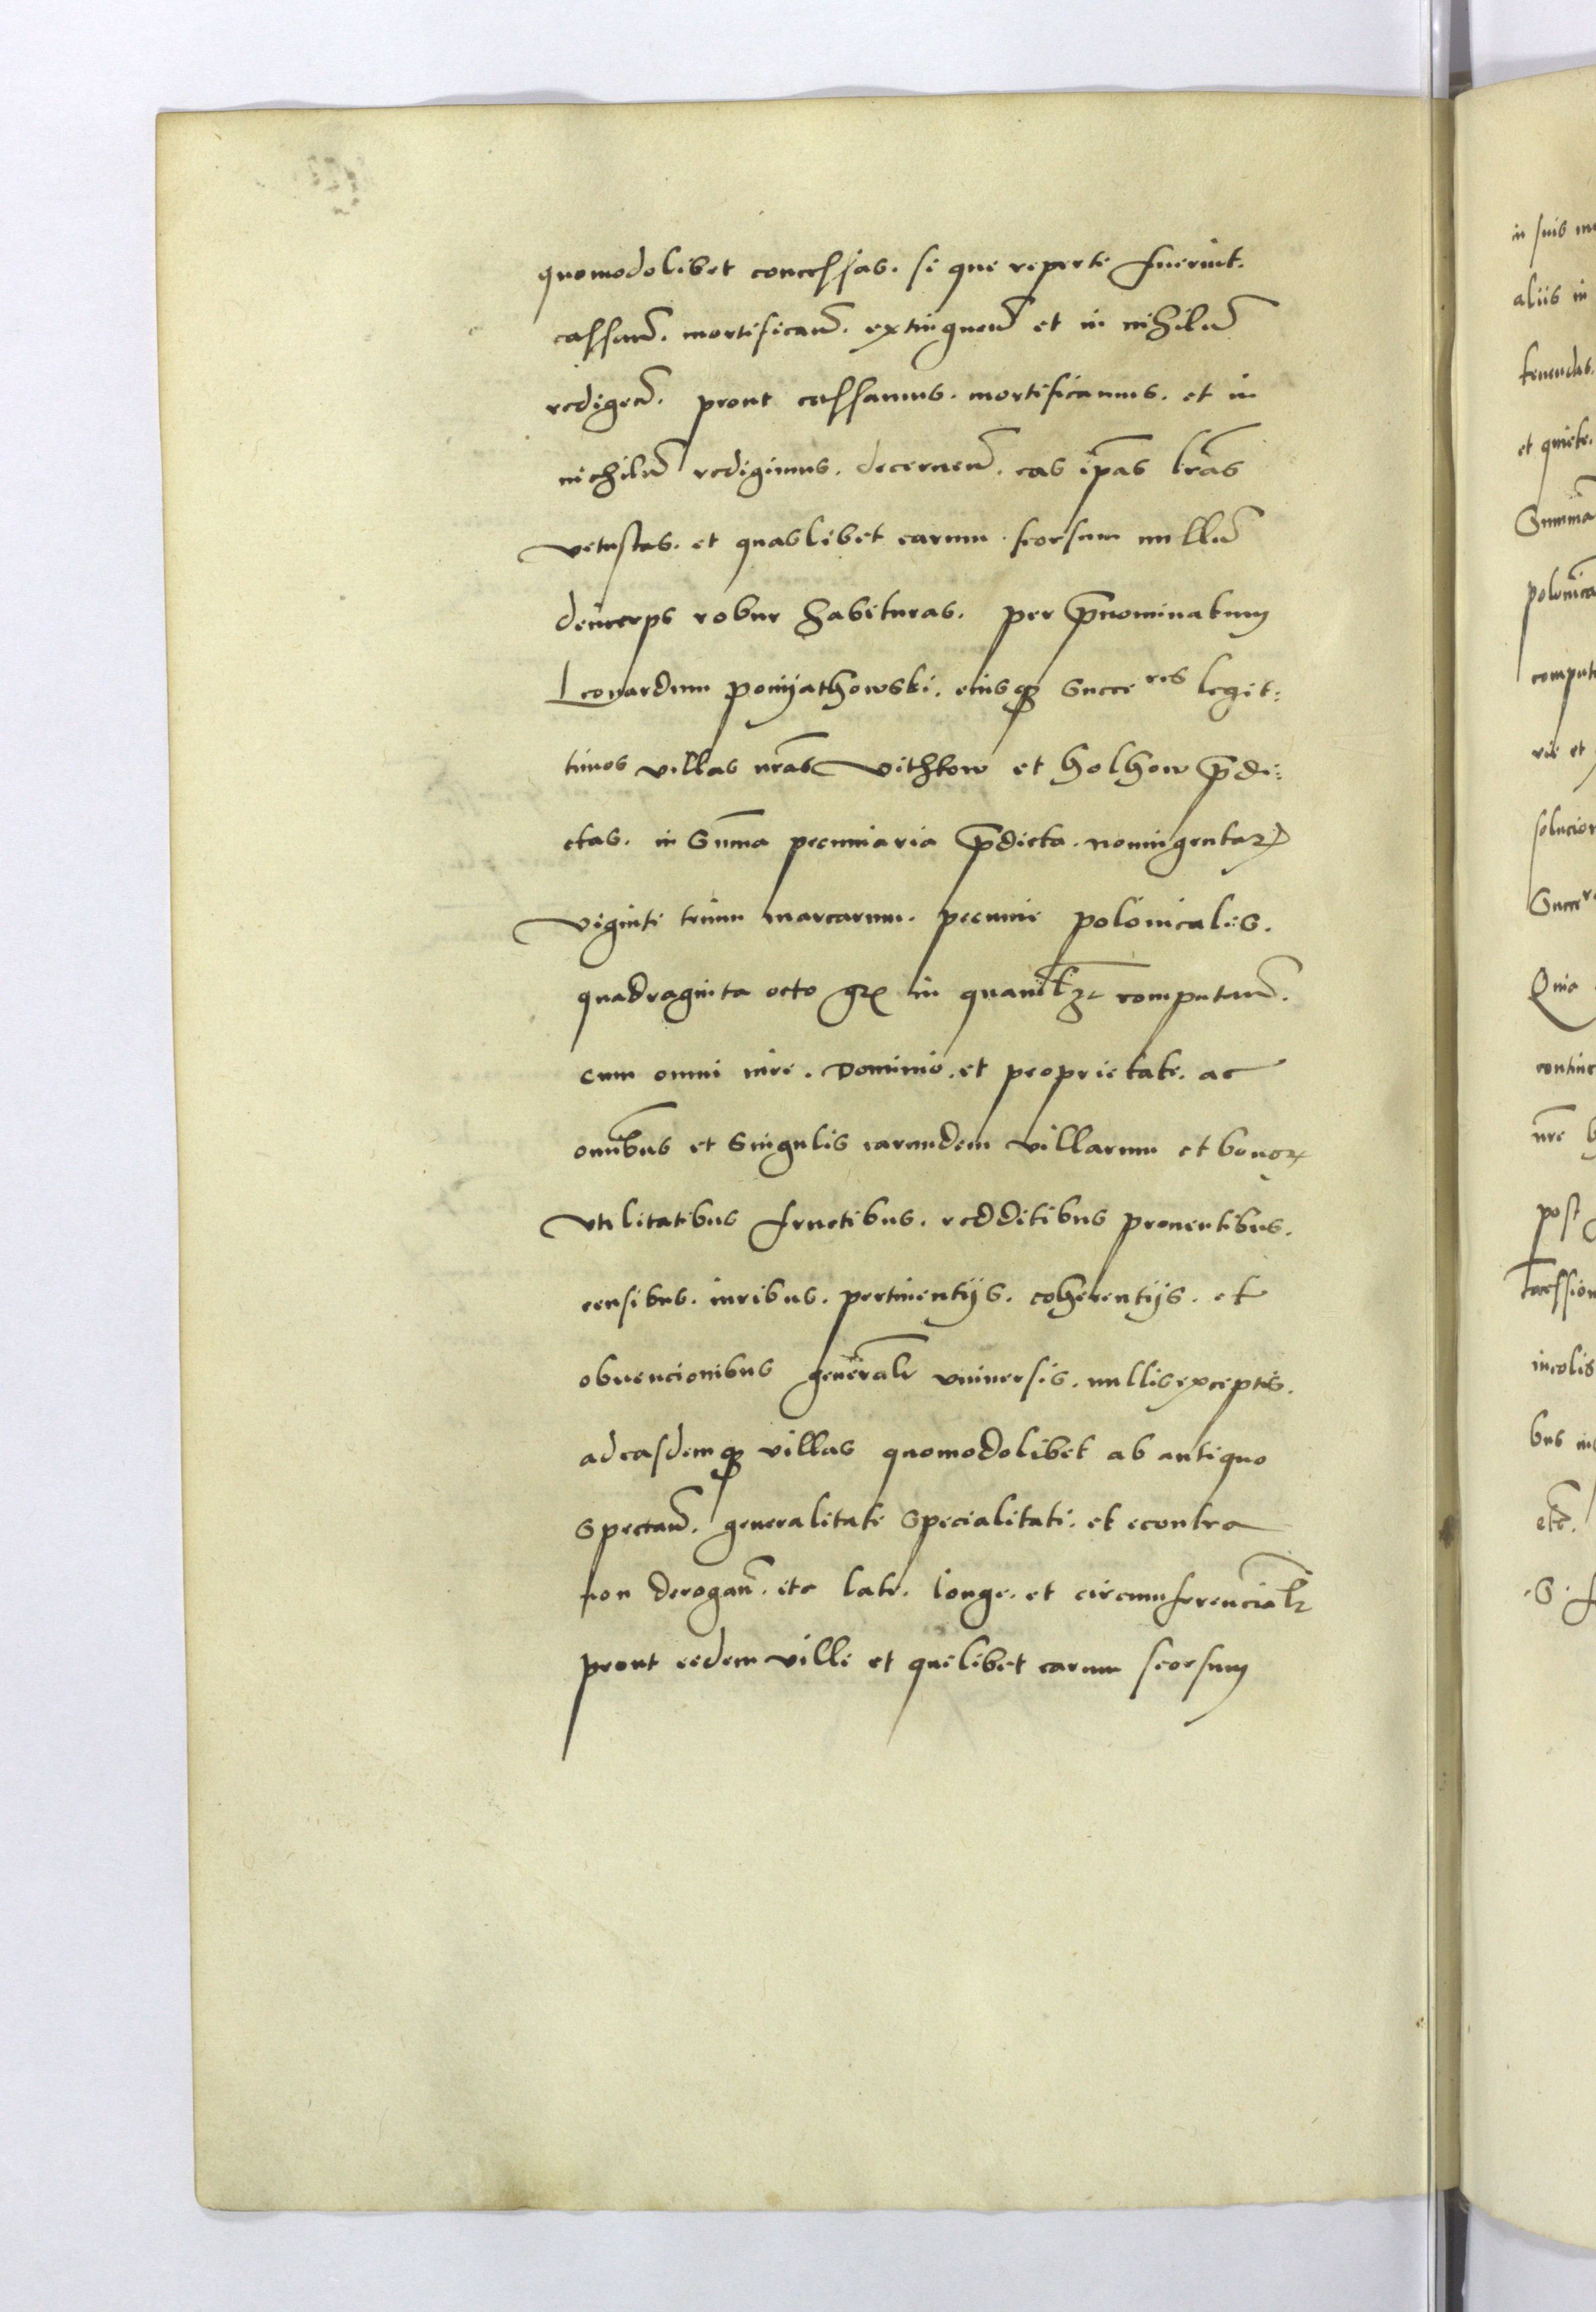 quomodolibet concessas. si que reperte fuerint.
cassan̄. mortifican̄. extinguen̄ et in nihilū
redigen̄. prout cassamus. mortificamus. et in
nichilū redigimus. decernen̄. eas ip̄as lr̄as
vetustas. et quaslibet earum seorsum nullū
deinceps robur habituras. per p̄nominatum
Leonardum ponyathowski. eiusqꝫ Succeres legit:
timos villas nr̄as vithkow et holhow p̄di:
ctas. in Sum̄a pecuniaria p̄dicta. nonningentaꝝ
viginti trium marcarum. pecunie polonicalis.
quadraginta octo gr̄ in quaml̄ꝫ computan̄.
cum omni iure. Dominio. et proprietate. ac
omībus et Singulis earundem villarum et bonoꝝ
vtilitatibus fructibus. redditibus prouentibus.
censibus. iuribus. pertinentijs. coherentijs. et
obuencionibus generalr̄ vniuersis. nullis exceptis.
ad easdemqꝫ villas quomodolibet ab antiquo
spectan̄. generalitate specialitati. et econtra
non derogan̄. ita late. longe. et circumferencialr̄
prout eedem ville et quelibet earum seorsum
in suis
aliis in
tenendas.
et quiete.
polonica
solucion
Quia
nr̄e
post
incolis